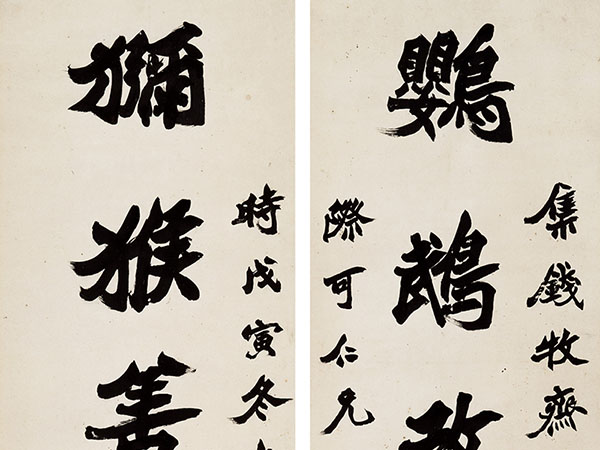 集錢牧齋
鸚鵡
際可仁兄
時戊寅冬
獼猴善